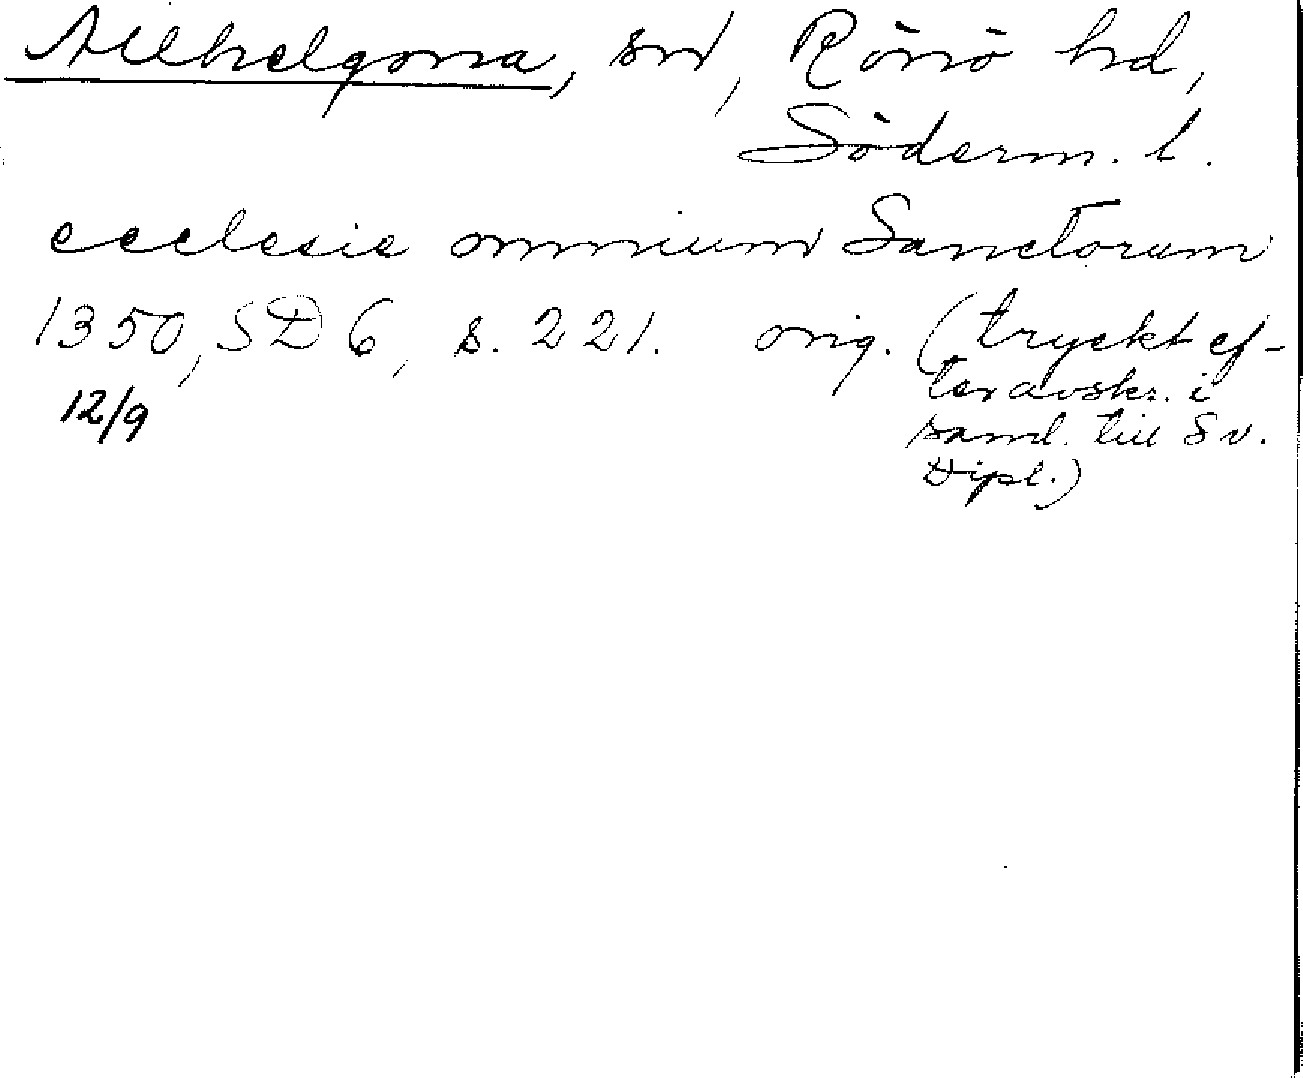 Allhelgona, sn, Rönö hd,
Söderm. l.
ecclesie omnium Sanctorum
1350, SD 6, s. 221. orig. (tryckt ef-
ter avskr. i
12/9
saml. till Sv.
Dipl.)